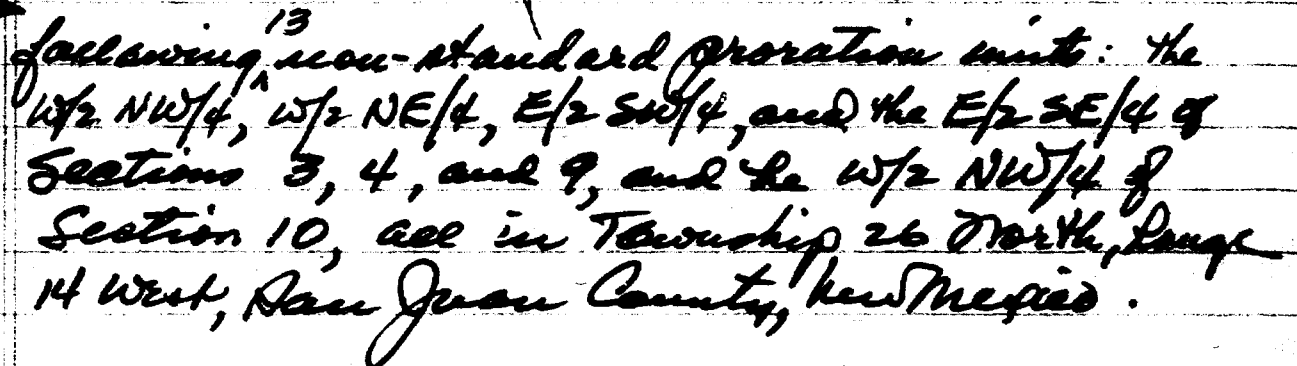 following ^13 non-standard proration units: the
W/2 NW/4, W/2 NE/4, E/2 SW/4, and the E/2 SE/4 of
Sections 3, 4, and 9, and the W/2 NW/4 of
Section 10, all in Township 26 North, Range
14 West, San Juan County, New Mexico.